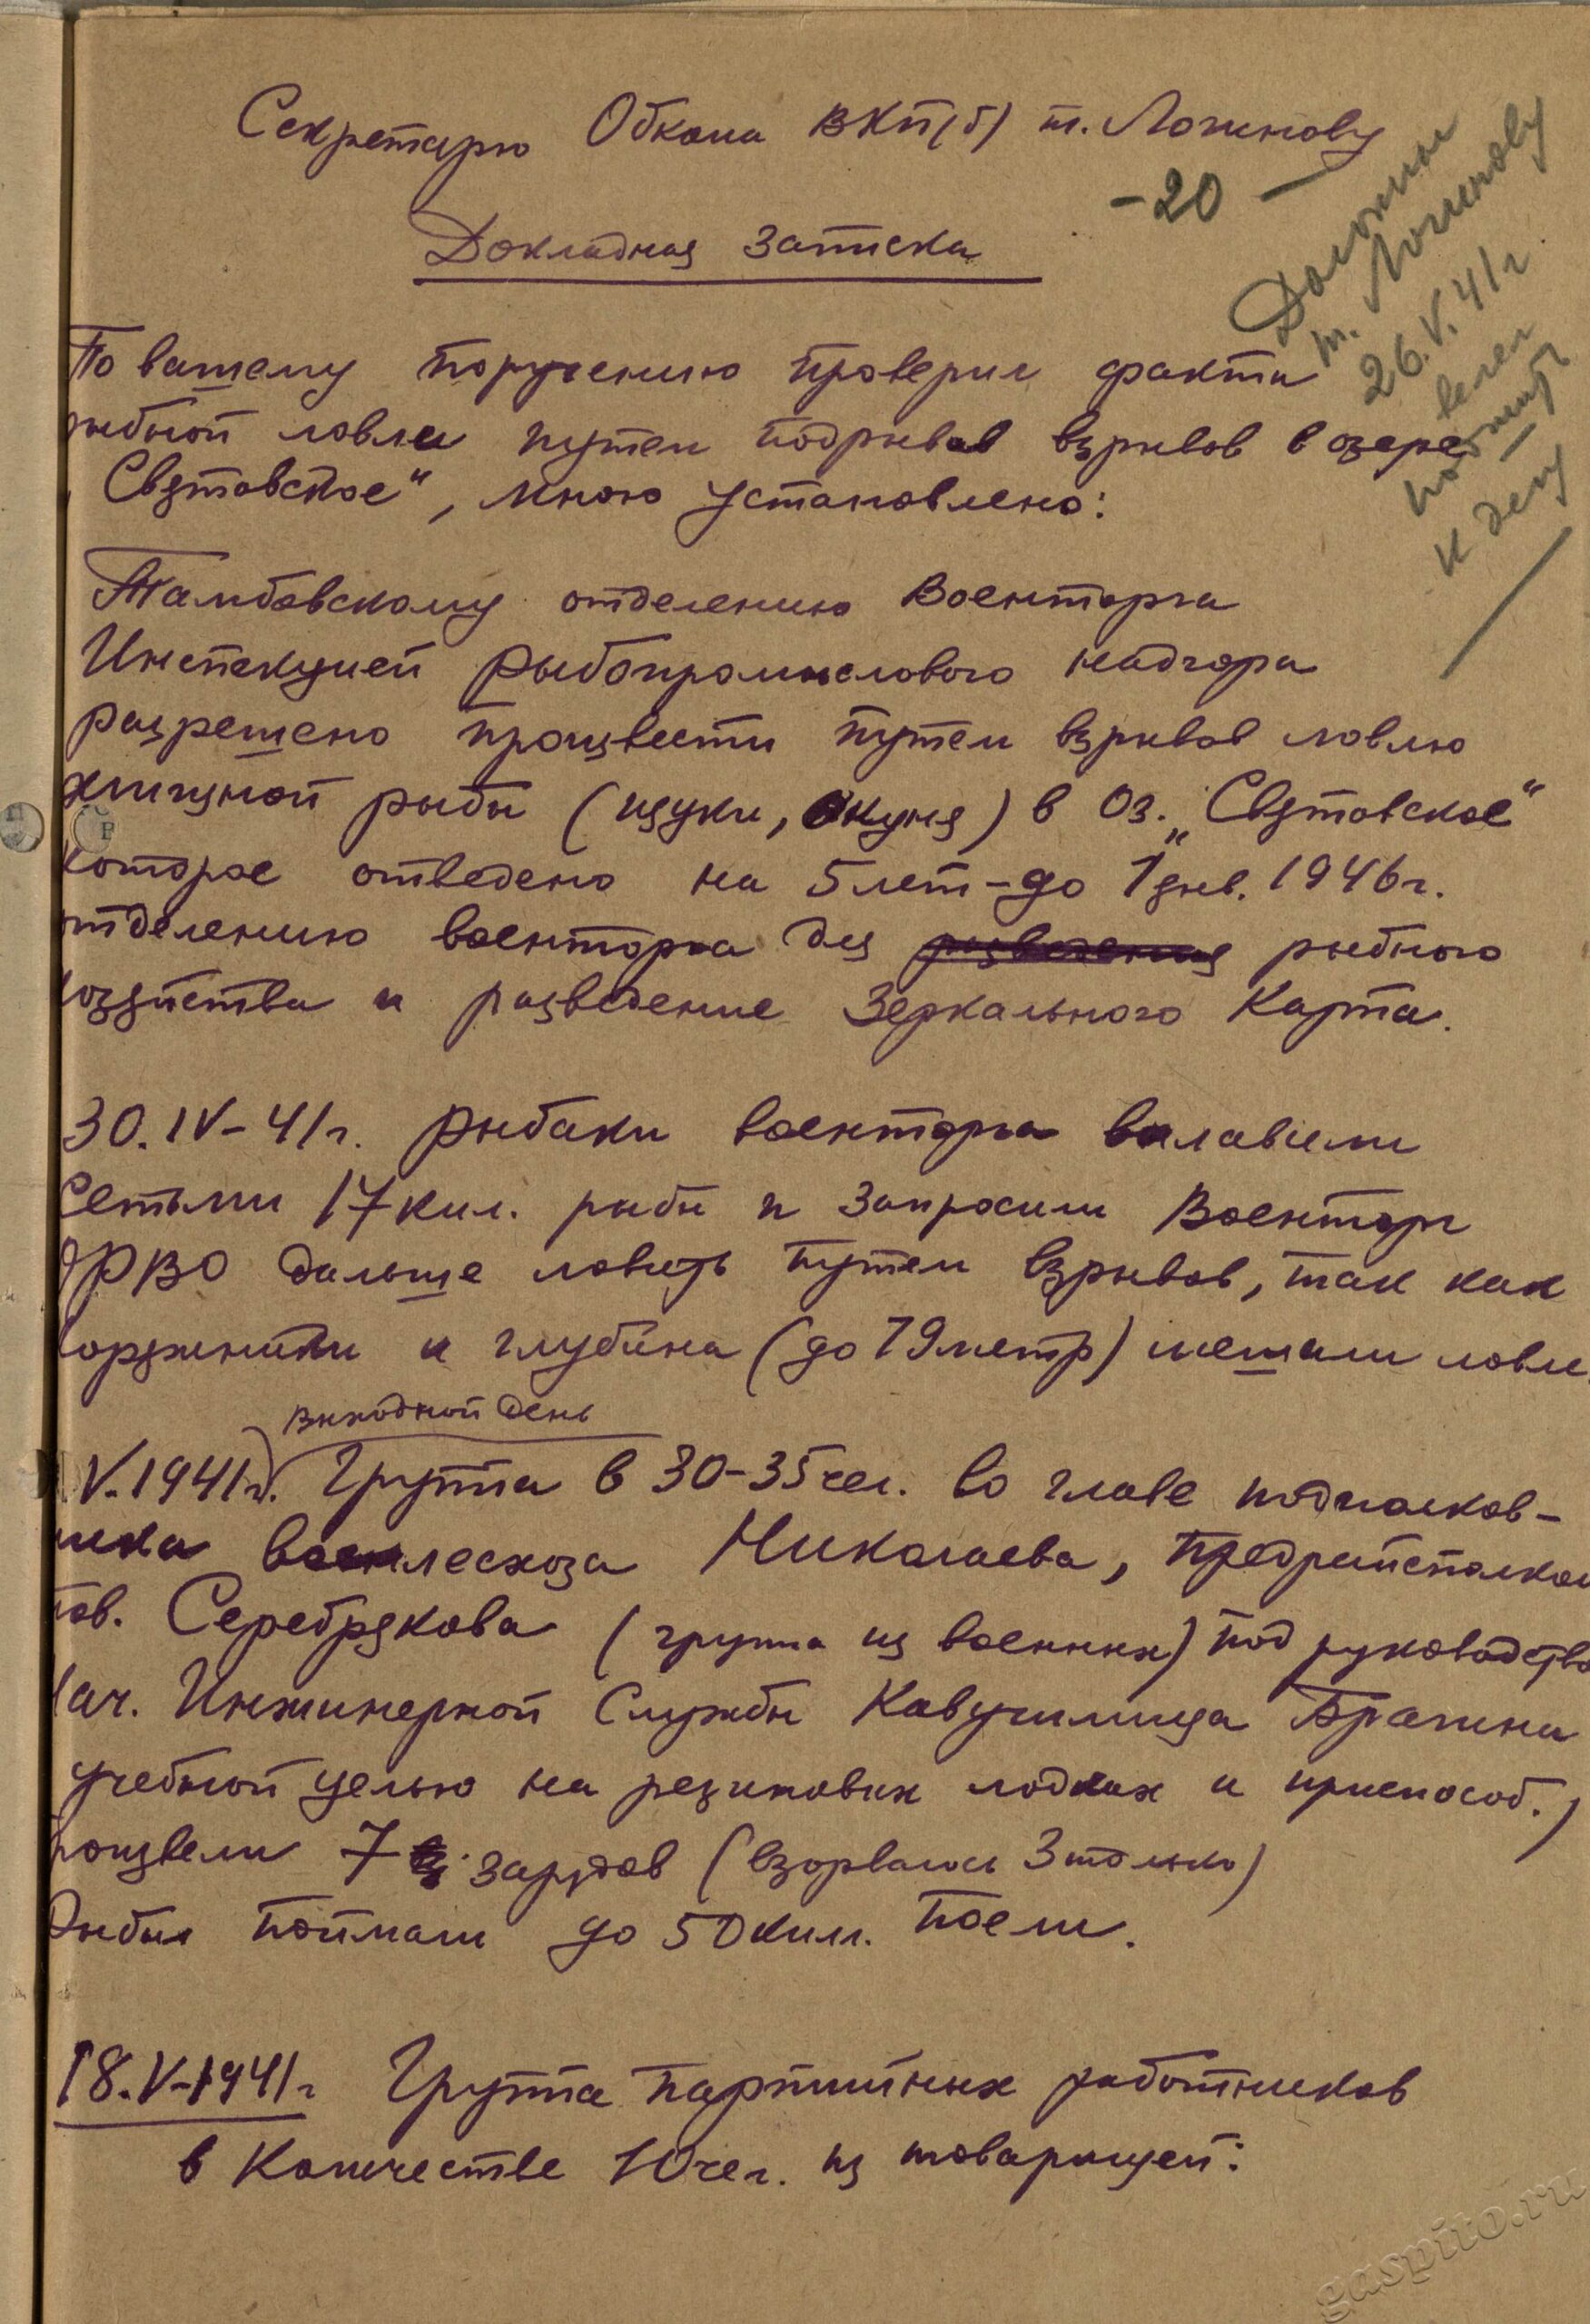 Секретарю Обкома ВКП(б) т. Логинову
-20-
Докладная записка
Доложил
т. Логинову
26.V.41г
велел
подшить
к делу
По вашему поручению проверил факты
рыбной ловли путем подрывов взрывов в озере
"Святовское", мною установлено:
Тамбовскому отделению Военторга
Инспекцией Рыбопромыслового надзора
разрешено произвести путем взрывов ловлю
хищной рыбы (щуки, окуня) в Оз. "Святовское"
которое отведено на 5 лет - до 1 янв. 1946 г.
отделению военторга для разведения рыбного
хозяйства и разведение Зеркального Карпа.
30.IV-41г. рыбаки военторга выловили
Сетями 17 кил. рыбы и запросили Военторг
ОРВО дальше ловить путем взрывов, так как
коряжники и глубина (до 19 метр) мешали ловле.
Выходной день
V.1941г. Группа в 30-35 чел. во главе подполков-
ника военлесхоза Николаева, предрайисполком
тов. Серебрякова (группа из военных) под руководство
Нач. Инжинерной Службы Кавучилища Брагина
учебной целью на резиновых лодках и приспособ.)
произвели 7 зарядов (взорвалось 3 только)
Рыбы поймали до 50 кил. поели.
18.V-1941г Группа партийных работников
в Количестве 10 чел. из товарищей:
gaspito.ru